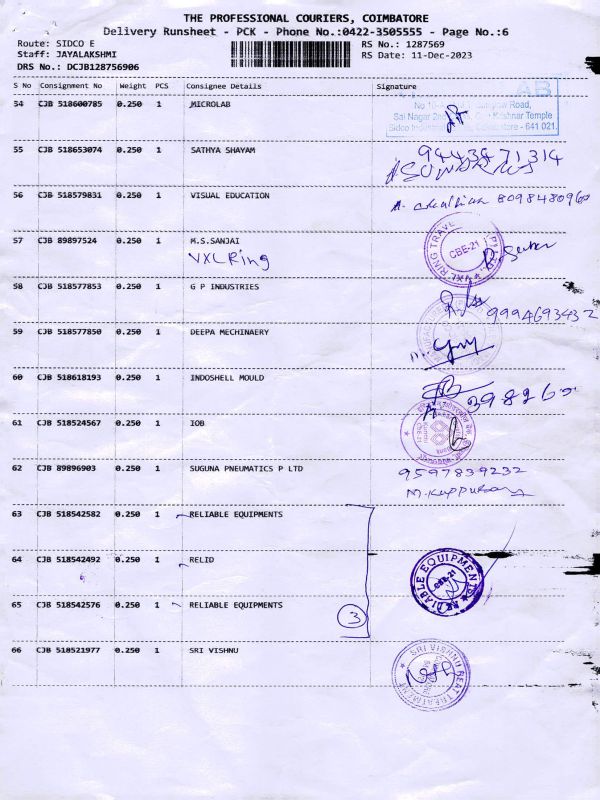 THE PROFESSIONAL COURIERS, COIMBATORE
Delivery Runsheet - PCK - Phone No.:0422-3505555 - Page No.:6
Route: SIDCO E
RS No.: 1287569
Staff: JAYALAKSHMI
RS Date: 11-Dec-2023
DRS No.: DCJB128756906
S No Consignment No Weight PCS Consignee Details Signature
54 CJB 518600785 0.250 1 MICROLAB
Road,
Sai Nagar Temple
Sidco - 641 021.
55 CJB 518653074 0.250 1 SATHYA SHAYAM
9443871314
56 CJB 518579831 0.250 1 VISUAL EDUCATION
8098480960
57 CJB 89897524 0.250 1 M.S.SANJAI
VXL Ring
VXL RING TRAVE
CBE-21
58 CJB 518577853 0.250 1 G P INDUSTRIES
9994693432
59 CJB 518577850 0.250 1 DEEPA MECHINAERY
60 CJB 518618193 0.250 1 INDOSHELL MOULD
61 CJB 518524567 0.250 1 IOB
62 CJB 89896903 0.250 1 SUGUNA PNEUMATICS P LTD
9597839232
63 CJB 518542582 0.250 1 RELIABLE EQUIPMENTS
64 CJB 518542492 0.250 1 RELID
RELIABLE EQUIPMENTS
CBE-21
65 CJB 518542576 0.250 1 RELIABLE EQUIPMENTS
3
66 CJB 518521977 0.250 1 SRI VISHNU
SRI VISHNU HEAT TREATMENT